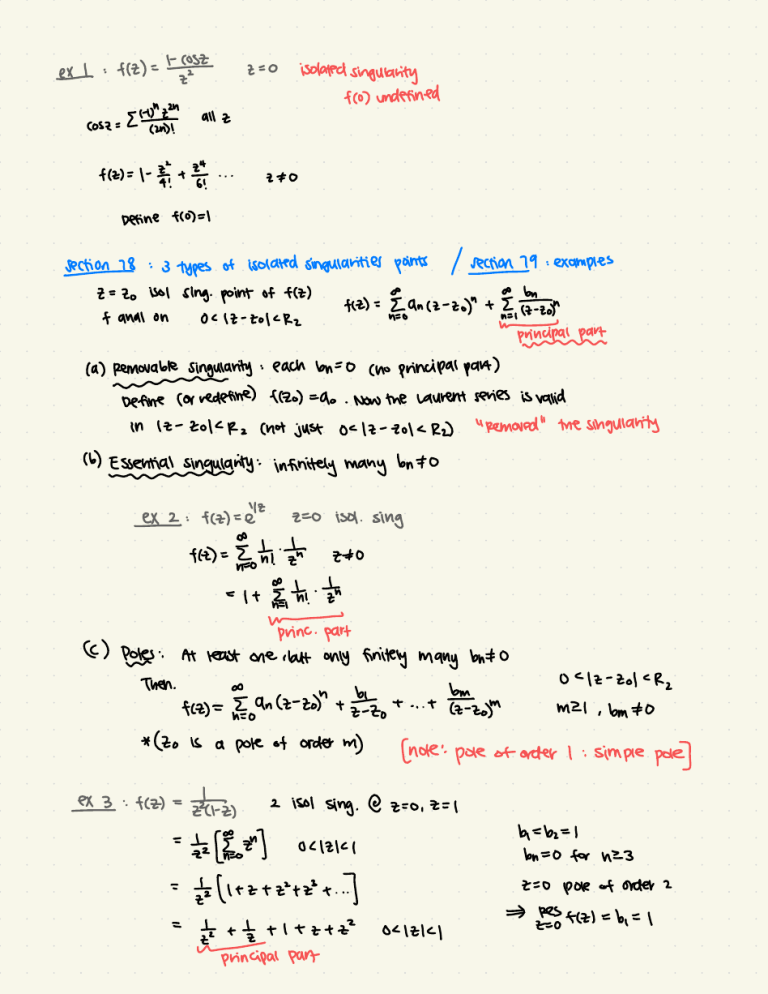 ex 1 : f(z) = (1-cosz)/z² z=0 isolated singularity
f(0) undefined
cosz = Σ (-1)ⁿ z²ⁿ/(2n)! all z
f(z) = 1 - z²/4! + z⁴/6! ... z≠0
Define f(0)=1
section 78 : 3 types of isolated singularities points / section 79 : examples
z = z₀ isol sing. point of f(z)
f anal on 0<|z-z₀|<R₂
f(z) = Σ_{n=0}^{∞} aₙ(z-z₀)ⁿ + Σ_{n=1}^{∞} bₙ/(z-z₀)ⁿ
principal part
(a) Removable singularity : each bₙ=0 (no principal part)
Define (or redefine) f(z₀)=a₀. Now the Laurent series is valid
in |z-z₀|<R₂ (not just 0<|z-z₀|<R₂) "removed" the singularity
(b) Essential singularity: infinitely many bₙ≠0
ex 2 : f(z)=e^{1/z} z=0 isol. sing
f(z) = Σ_{n=0}^{∞} 1/n! · 1/zⁿ z≠0
= 1+ Σ_{n=1}^{∞} 1/n! · 1/zⁿ
princ. part
(c) Poles: At least one, but only finitely many bₙ≠0
Then.
f(z) = Σ_{n=0}^{∞} aₙ(z-z₀)ⁿ + b₁/(z-z₀) + ... + bₘ/(z-z₀)ᵐ
0<|z-z₀|<R₂
m≥1, bₘ≠0
*(z₀ is a pole of order m) [note: pole of order 1 : simple pole]
ex 3 : f(z) = 1/(z²(1-z)) 2 isol sing. @ z=0, z=1
= 1/z² [Σ_{n=0}^{∞} zⁿ] 0<|z|<1
= 1/z² [1+z+z²+z³+...]
= 1/z² + 1/z + 1 + z + z² 0<|z|<1
principal part
b₁=b₂=1
bₙ=0 for n≥3
z=0 pole of order 2
⇒ Res_{z=0} f(z) = b₁ = 1